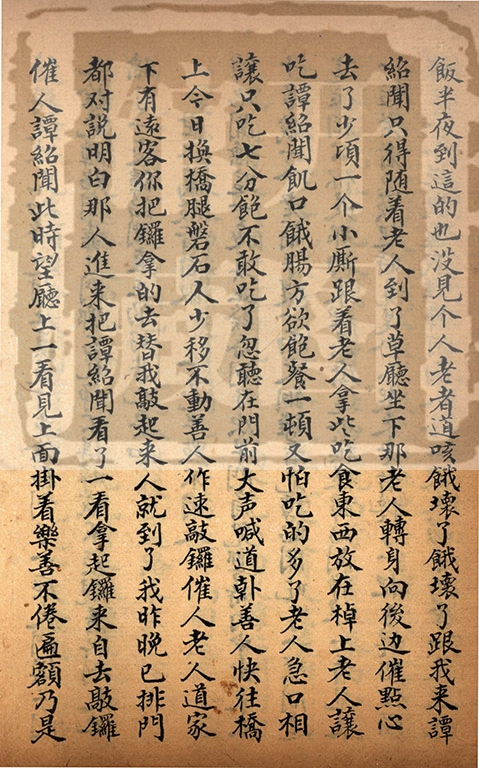 飯半夜到這的也没見个人老者道咳餓壞了餓壞了跟我来譚
紹聞只得随着老人到了草廳坐下那老人轉身向後边催點心
去了少項一个小厮跟着老人拿些吃食東西放在棹上老人讓
吃譚紹聞飢口餓腸方欲飽餐一頓又怕吃的多了老人急口相
讓只吃七分飽不敢吃了忽聽在門前大声喊道𠦝善人快往橋
上今日換橋腿磐石人少移不動善人作速敲鑼催人老人道家
下有遠客你把鑼拿的去替我敲起来人就到了我昨晚已排門
都对說明白那人進来把譚紹聞看了一看拿起鑼来自去敲鑼
催人譚紹聞此時望廳上一看見上面掛着樂善不倦匾額乃是